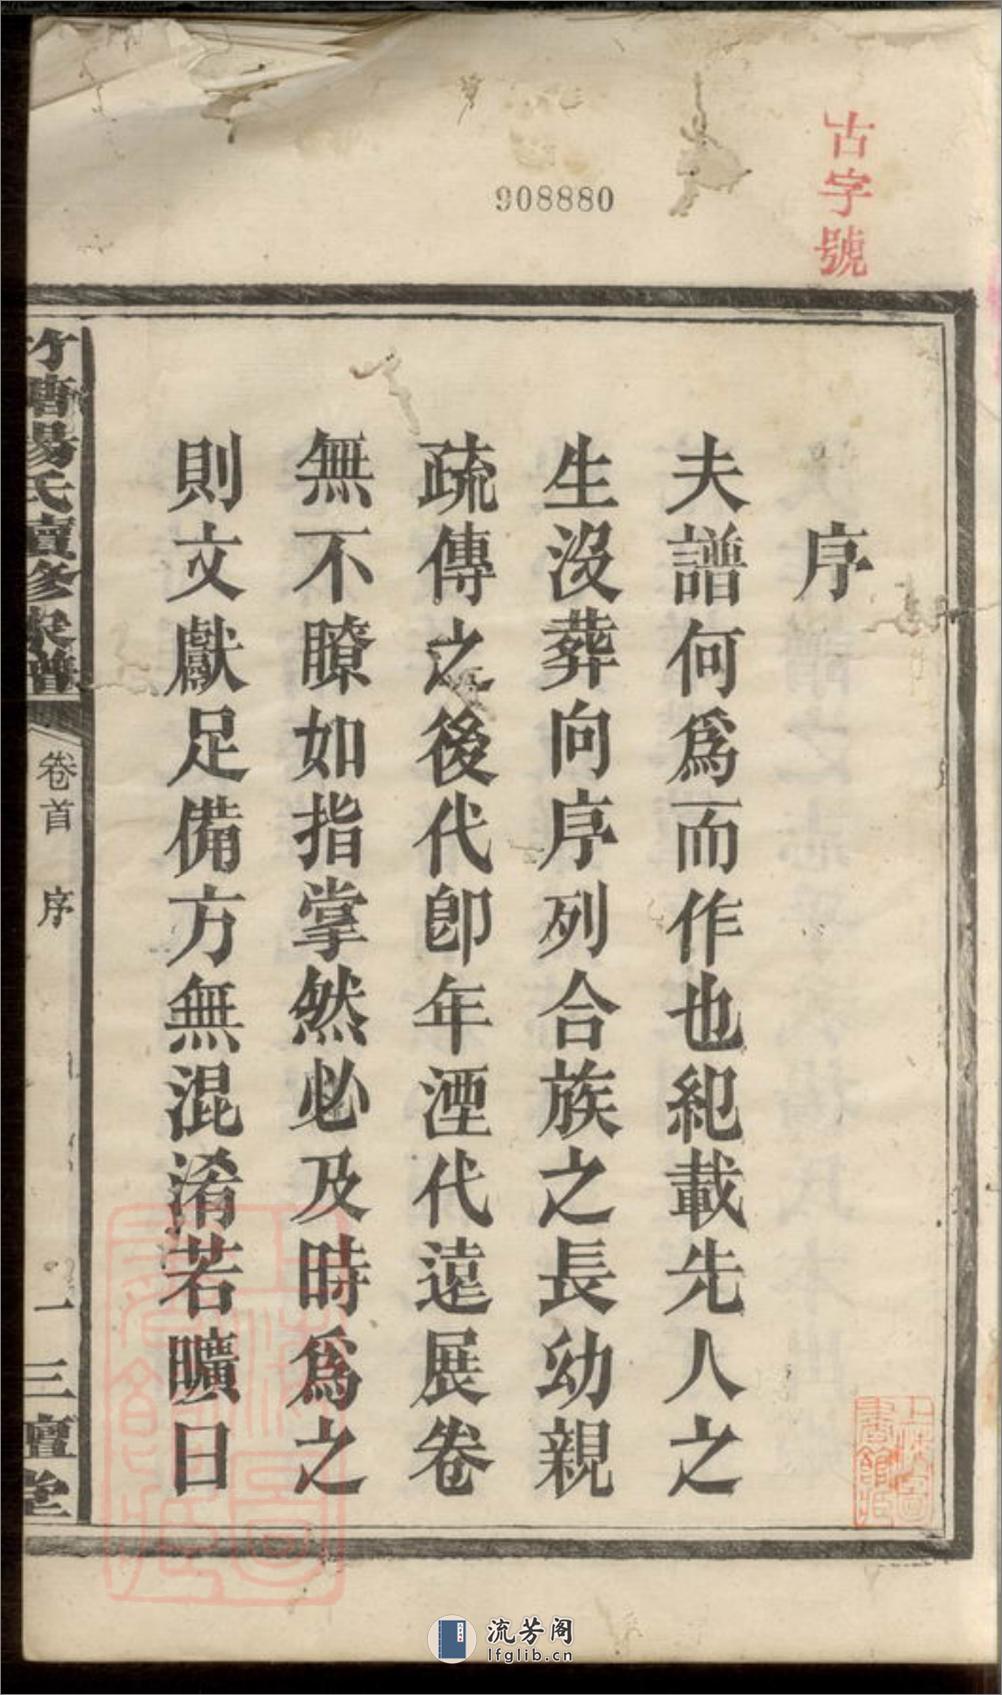 古字號
908880
序
夫譜何爲而作也紀載先人之
生沒葬向序列合族之長幼親
疏傳之後代卽年湮代遠展卷
無不瞭如指掌然必及時爲之
則文獻足備方無混淆若曠日
氏續修家譜
卷首
序
一
三
堂
上海圖書館藏
上海圖書館藏
流芳阁
lfglib.cn